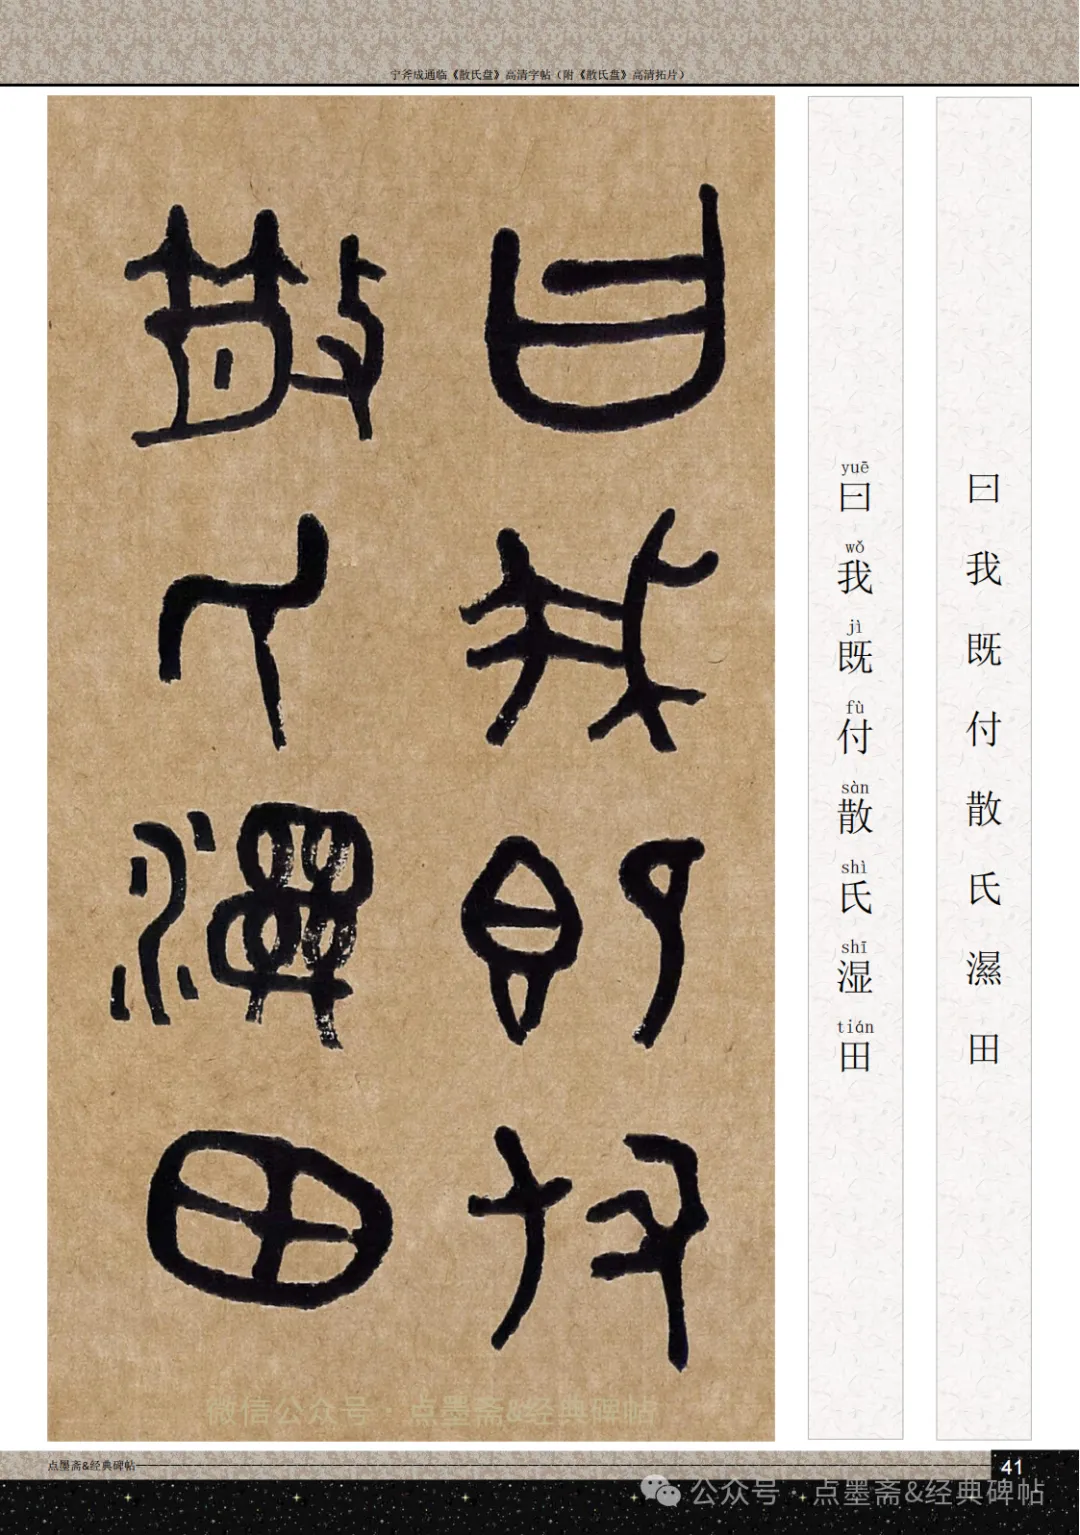 宁斧成通临《散氏盘》高清字帖（附《散氏盘》高清拓片）
曰我既付
散氏濕田
曰我既付散氏濕田
yuē wǒ jì fù sàn shì shī tián
曰我既付散氏湿田
微信公众号·点墨斋&经典碑帖
点墨斋&经典碑帖
41
公众号·点墨斋&经典碑帖